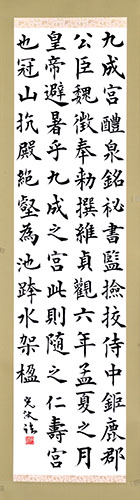 九成宮醴泉銘秘書監撿挍侍中鉅鹿郡
公臣魏徴奉勅撰維貞觀六年孟夏之月
皇帝避暑乎九成之宮此則隨之仁壽宮
也冠山抗殿絶壑為池跨水架楹